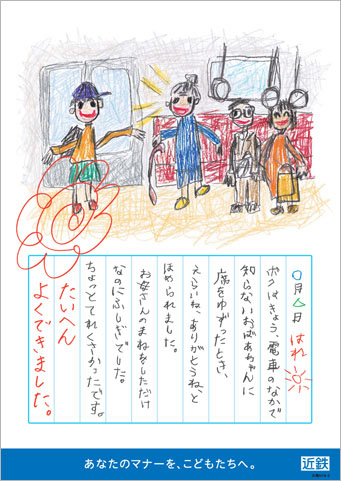 〇月△日 はれ
ボクはきょう、電車のなかで
知らないおばあちゃんに
席をゆずったとき、
えらいね、ありがとうね、と
ほめられました。
お母さんのまねをしただけ
なのにふしぎでした。
ちょっとてれくさかったです。
たいへん
よくできました。
あなたのマナーを、こどもたちへ。
近鉄